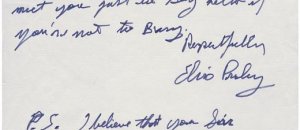 meet you just to say hello if
you're not to Busy.
Respectfully
Elvis Presley
P.S. I believe that you Sir